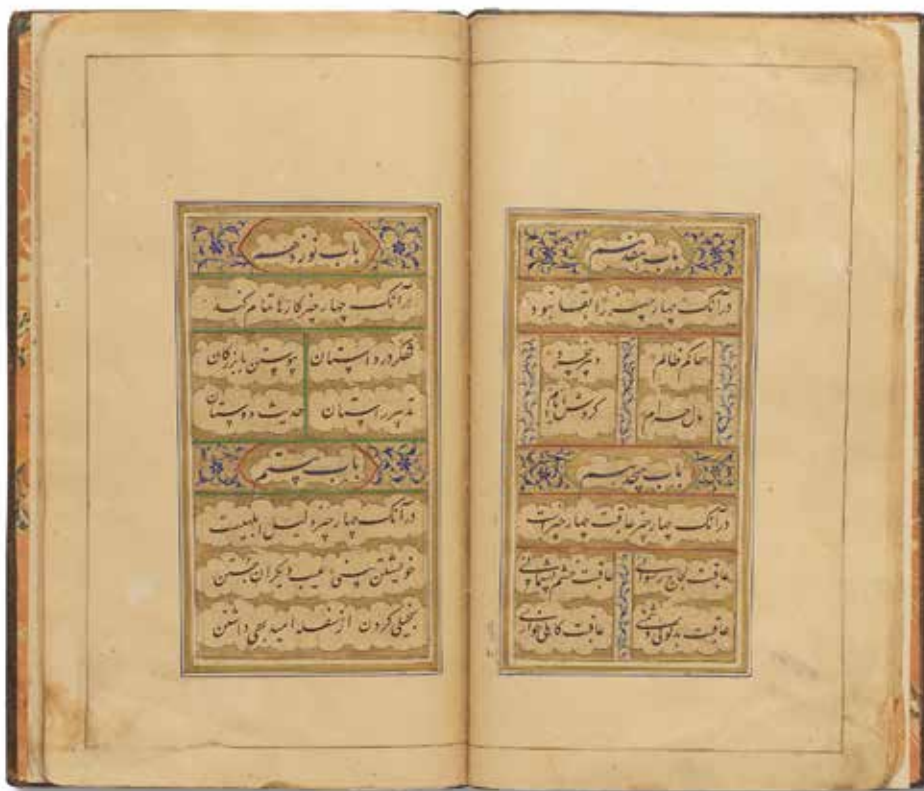 باب هفدهم
در آنک چهار چیز را بقا نبود
حاکم ظالم
مال حرام گردش ایام
باب هجدهم
در آنک چهار چیز عاقبت چهار چیز است
عاقبت لجاج رسوای عاقبت خشم پشیمانی
عاقبت بدگوی دشمنی عاقبت کاهلی خواری
باب نوزدهم
در آنک چهار چیز کارها تمام کند
پیوستن با بزرگان
تدبیر راستان حدیث دوستان
باب بیستم
در آنک چهار چیز دلیل ابلهیست
خویشتن بینی عیب دیگران جستن
بخیلی کردن از سفله امید بهی داشتن